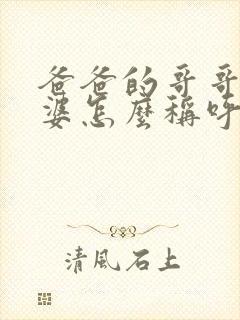 爸爸的哥哥
婆怎麼稱呼
清風石上